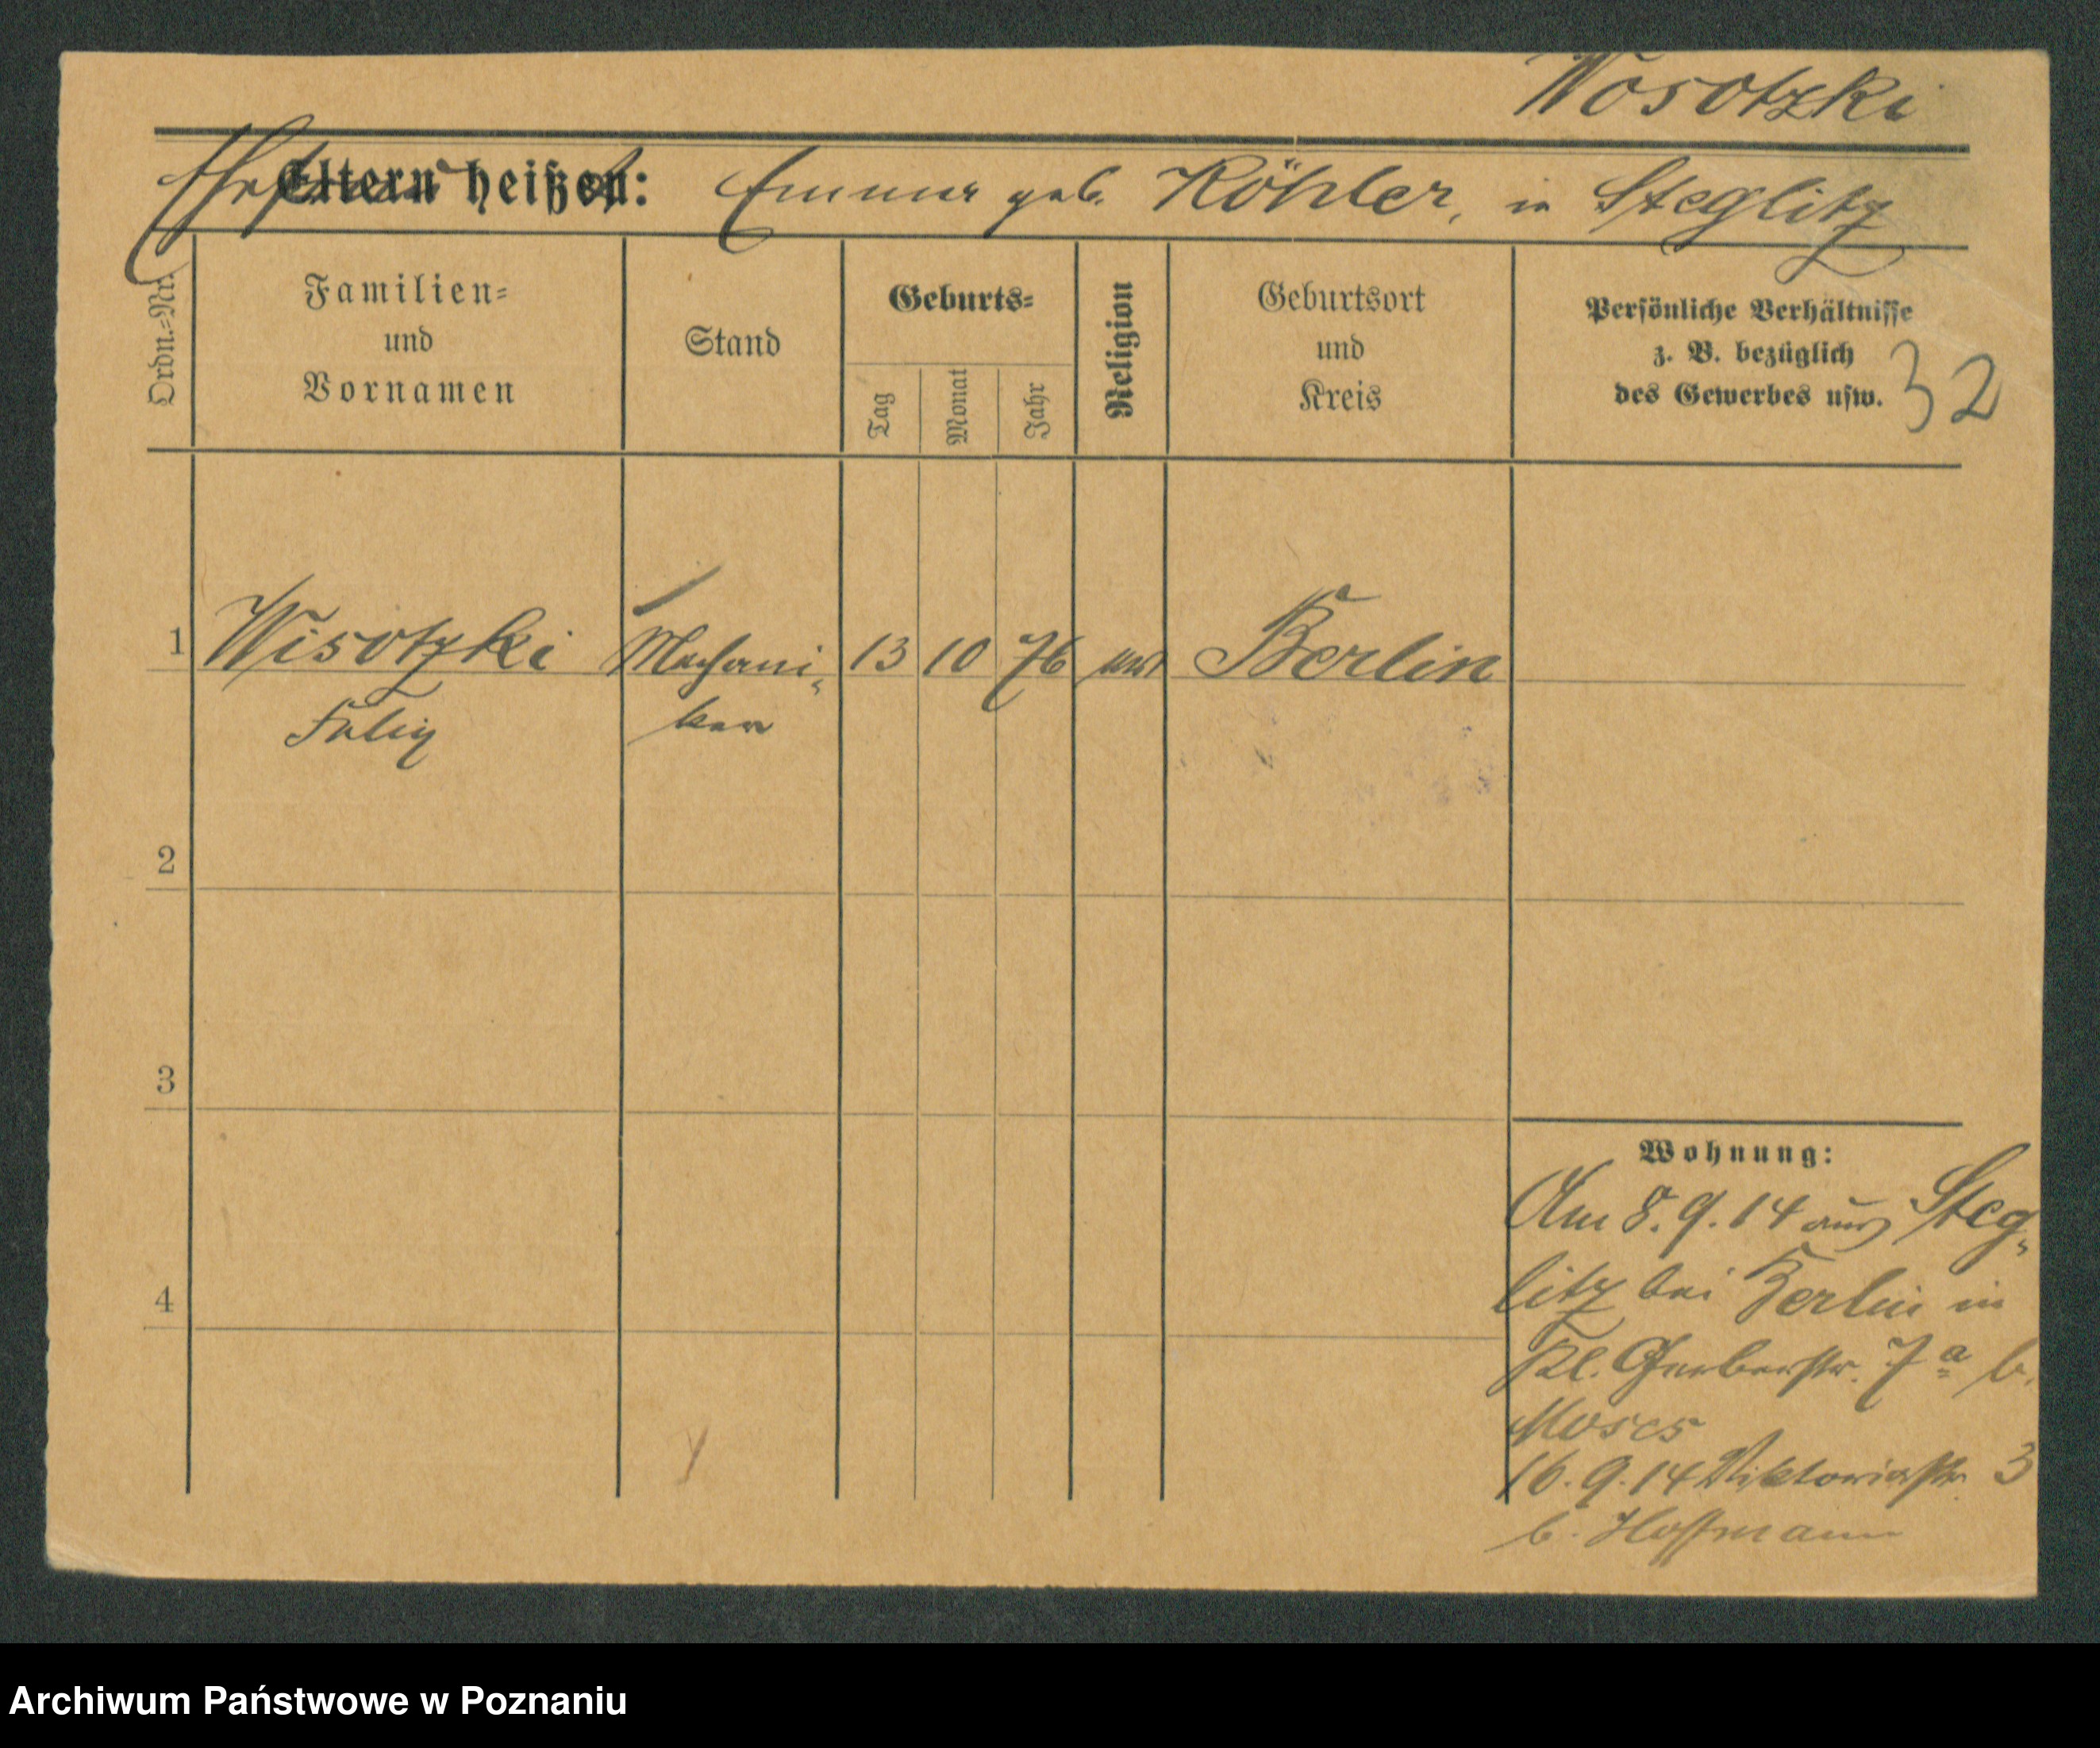 Wosotzki
Eltern heißen: Emma geb. Köhler, in Steglitz
Ordn.-Nr.
Familien-
und
Vornamen
Stand
Geburts-
Tag
Monat
Jahr
Religion
Geburtsort
und
Kreis
Persönliche Verhältnisse
z. B. bezüglich
des Gewerbes usw.
32
1 Wisotzki Mechani- 13 10 76 Berlin
Felix ker
2
3
4
Wohnung:
Am 8. 9. 14 aus Steg-
litz bei Berlin in
Kl. Gerberstr. 7a b.
Moses
16. 9. 14 Viktoriastr. 3
b. Hoffmann
Archiwum Państwowe w Poznaniu